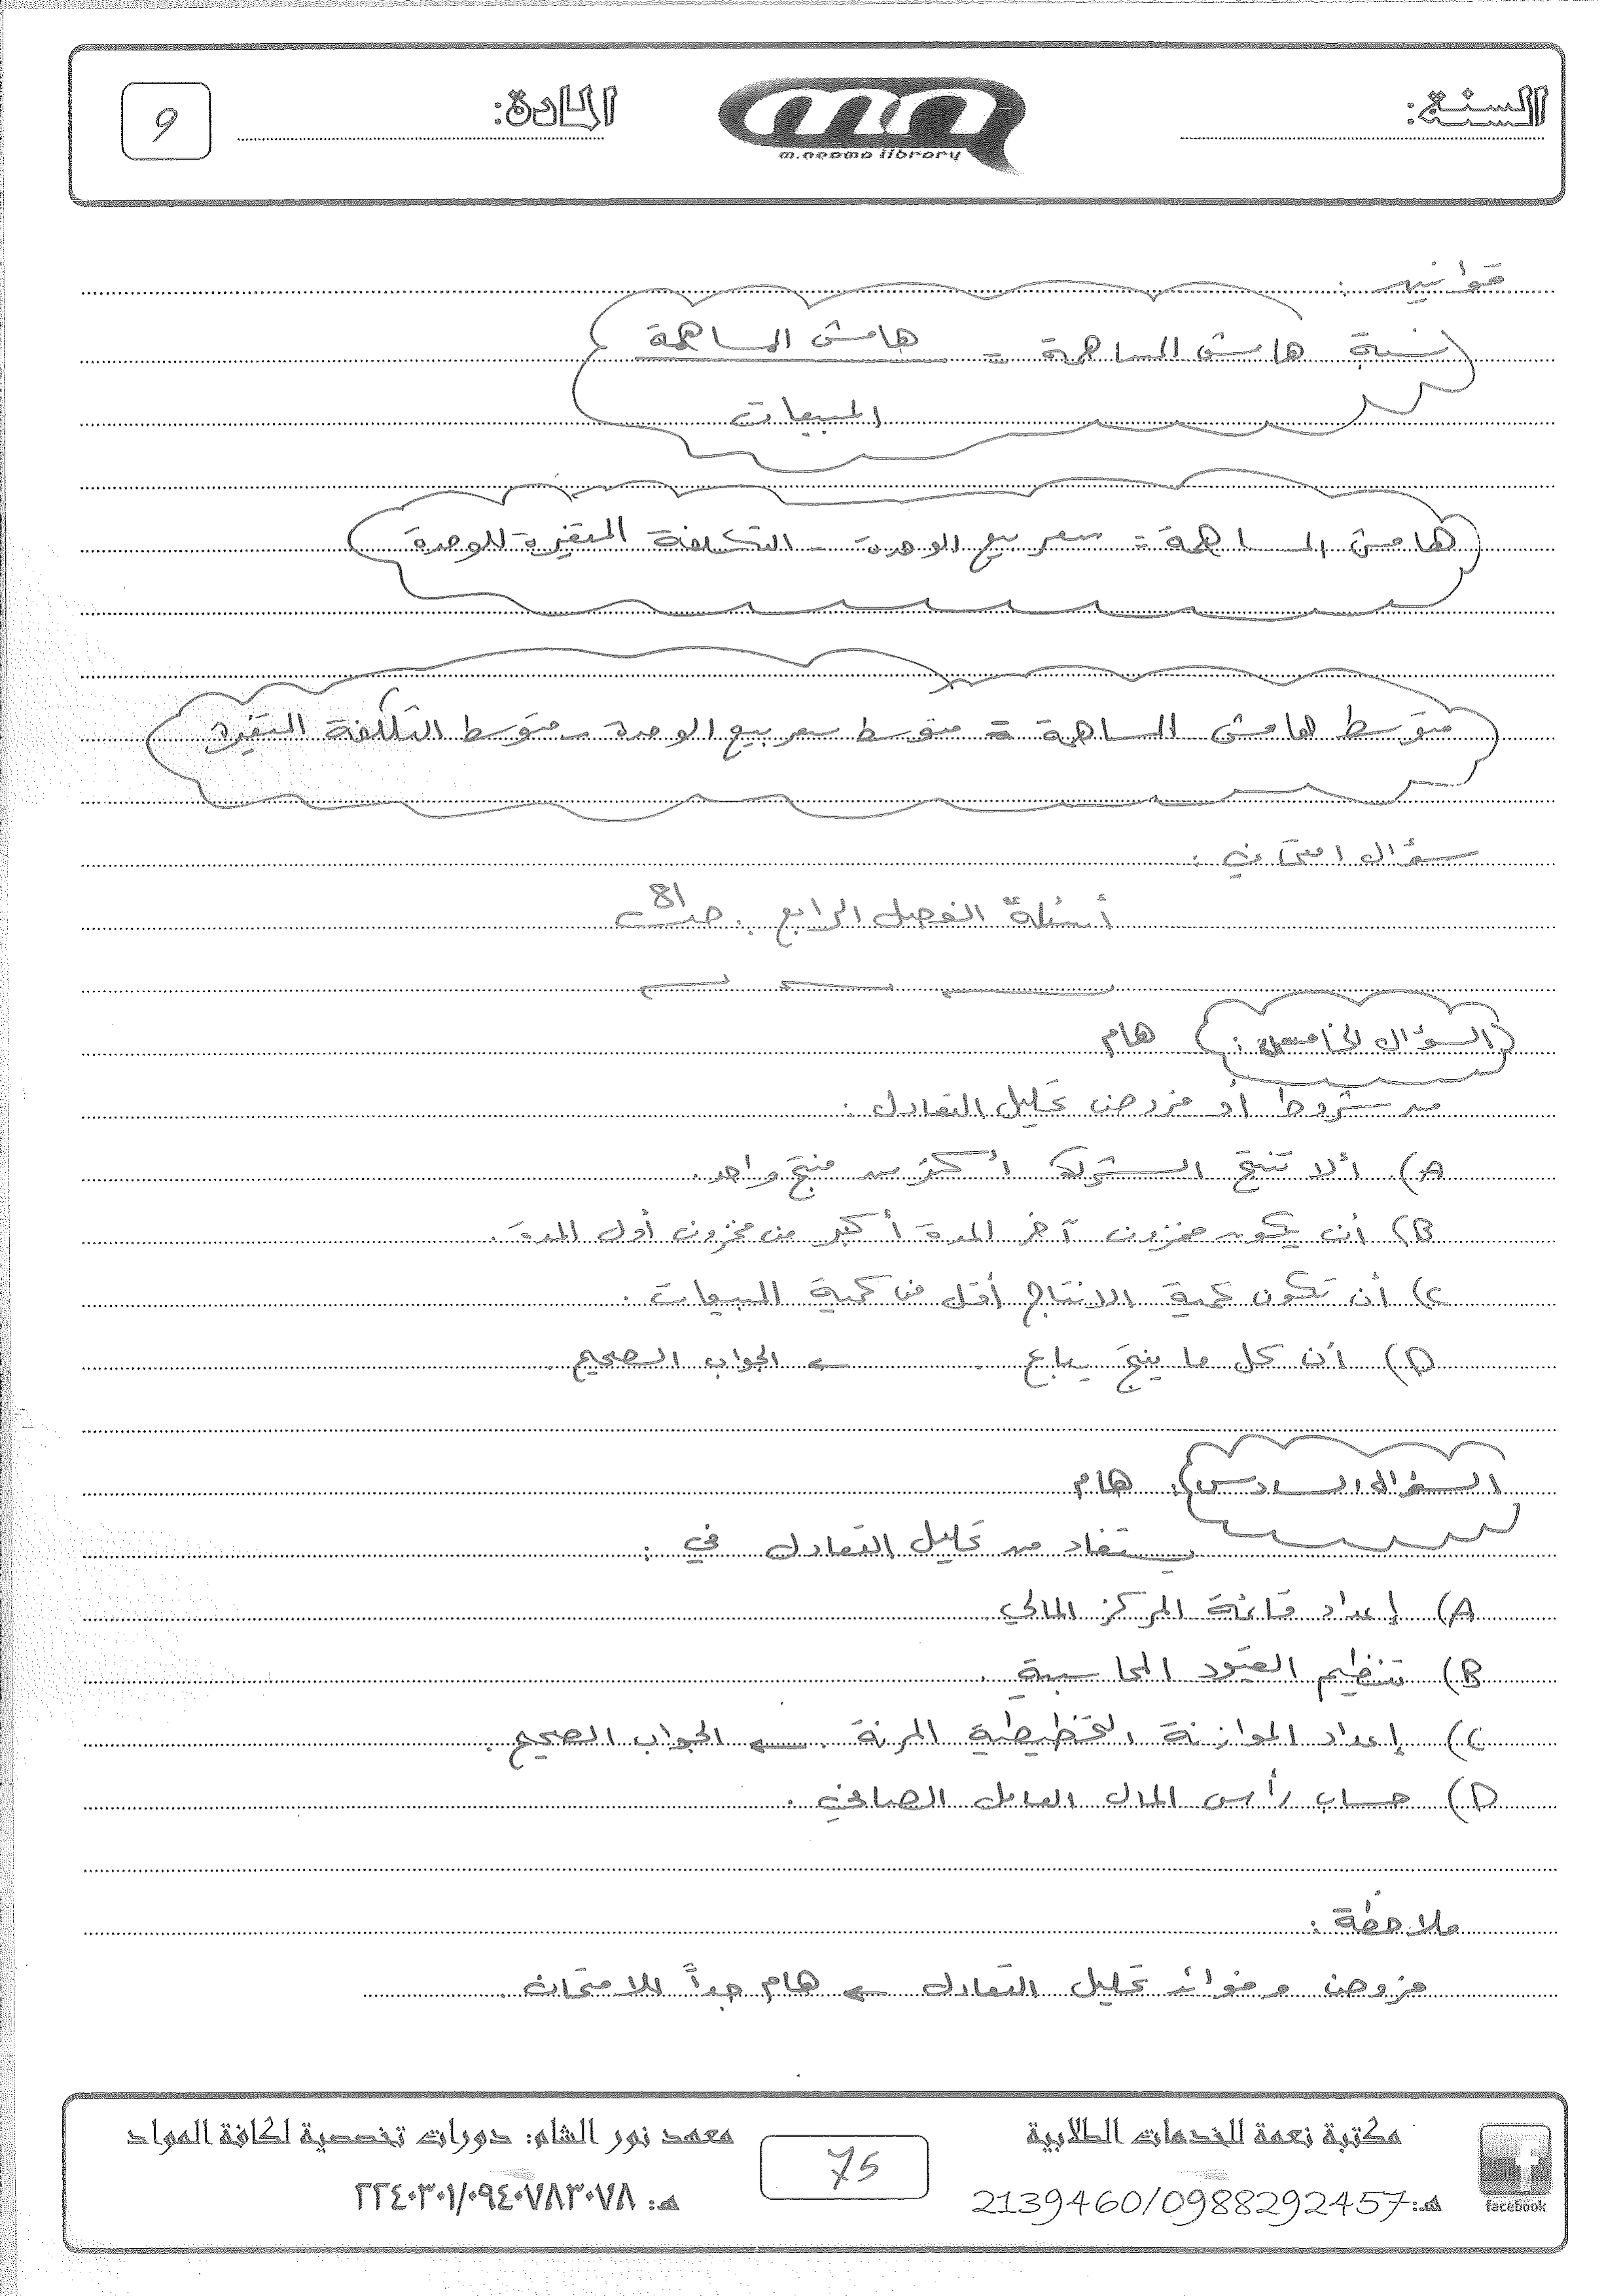 السنة:
المادة:
9
m.neama library
قوانين:
نسبة هامش المساهمة = هامش المساهمة
المبيعات
هامش المساهمة = سعر بيع الوحدة - التكلفة المتغيرة للوحدة
متوسط هامش المساهمة = متوسط سعر بيع الوحدة - متوسط التكلفة المتغيرة
سؤال امتحاني:
أسئلة الفصل الرابع: ص 81
السؤال الخامس: هام
من شروط أو فروض تحليل التعادل:
A) ألا تنتج الشركة أكثر من منتج واحد.
B) أن يكون مخزون آخر المدة أكبر من مخزون أول المدة.
C) أن تكون كمية الانتاج أقل من كمية المبيعات.
D) أن كل ما ينتج يباع. ← الجواب الصحيح.
السؤال السادس: هام
يستفاد من تحليل التعادل في:
A) إعداد قائمة المركز المالي
B) تنظيم القيود المحاسبية.
C) إعداد الموازنة التخطيطية المرنة. ← الجواب الصحيح.
D) حساب رأس المال العامل الصافي.
ملاحظة:
فروض وفوائد تحليل التعادل ← هام جداً للامتحان.
مكتبة نعمة للخدمات الطلابية
هـ: 2139460/0988292457
facebook
75
معهد نور الشام: دورات تخصصية لكافة المواد
هـ: ٢٢٤٠٣٠١/٠٩٤٠٧٨٣٠٧٨